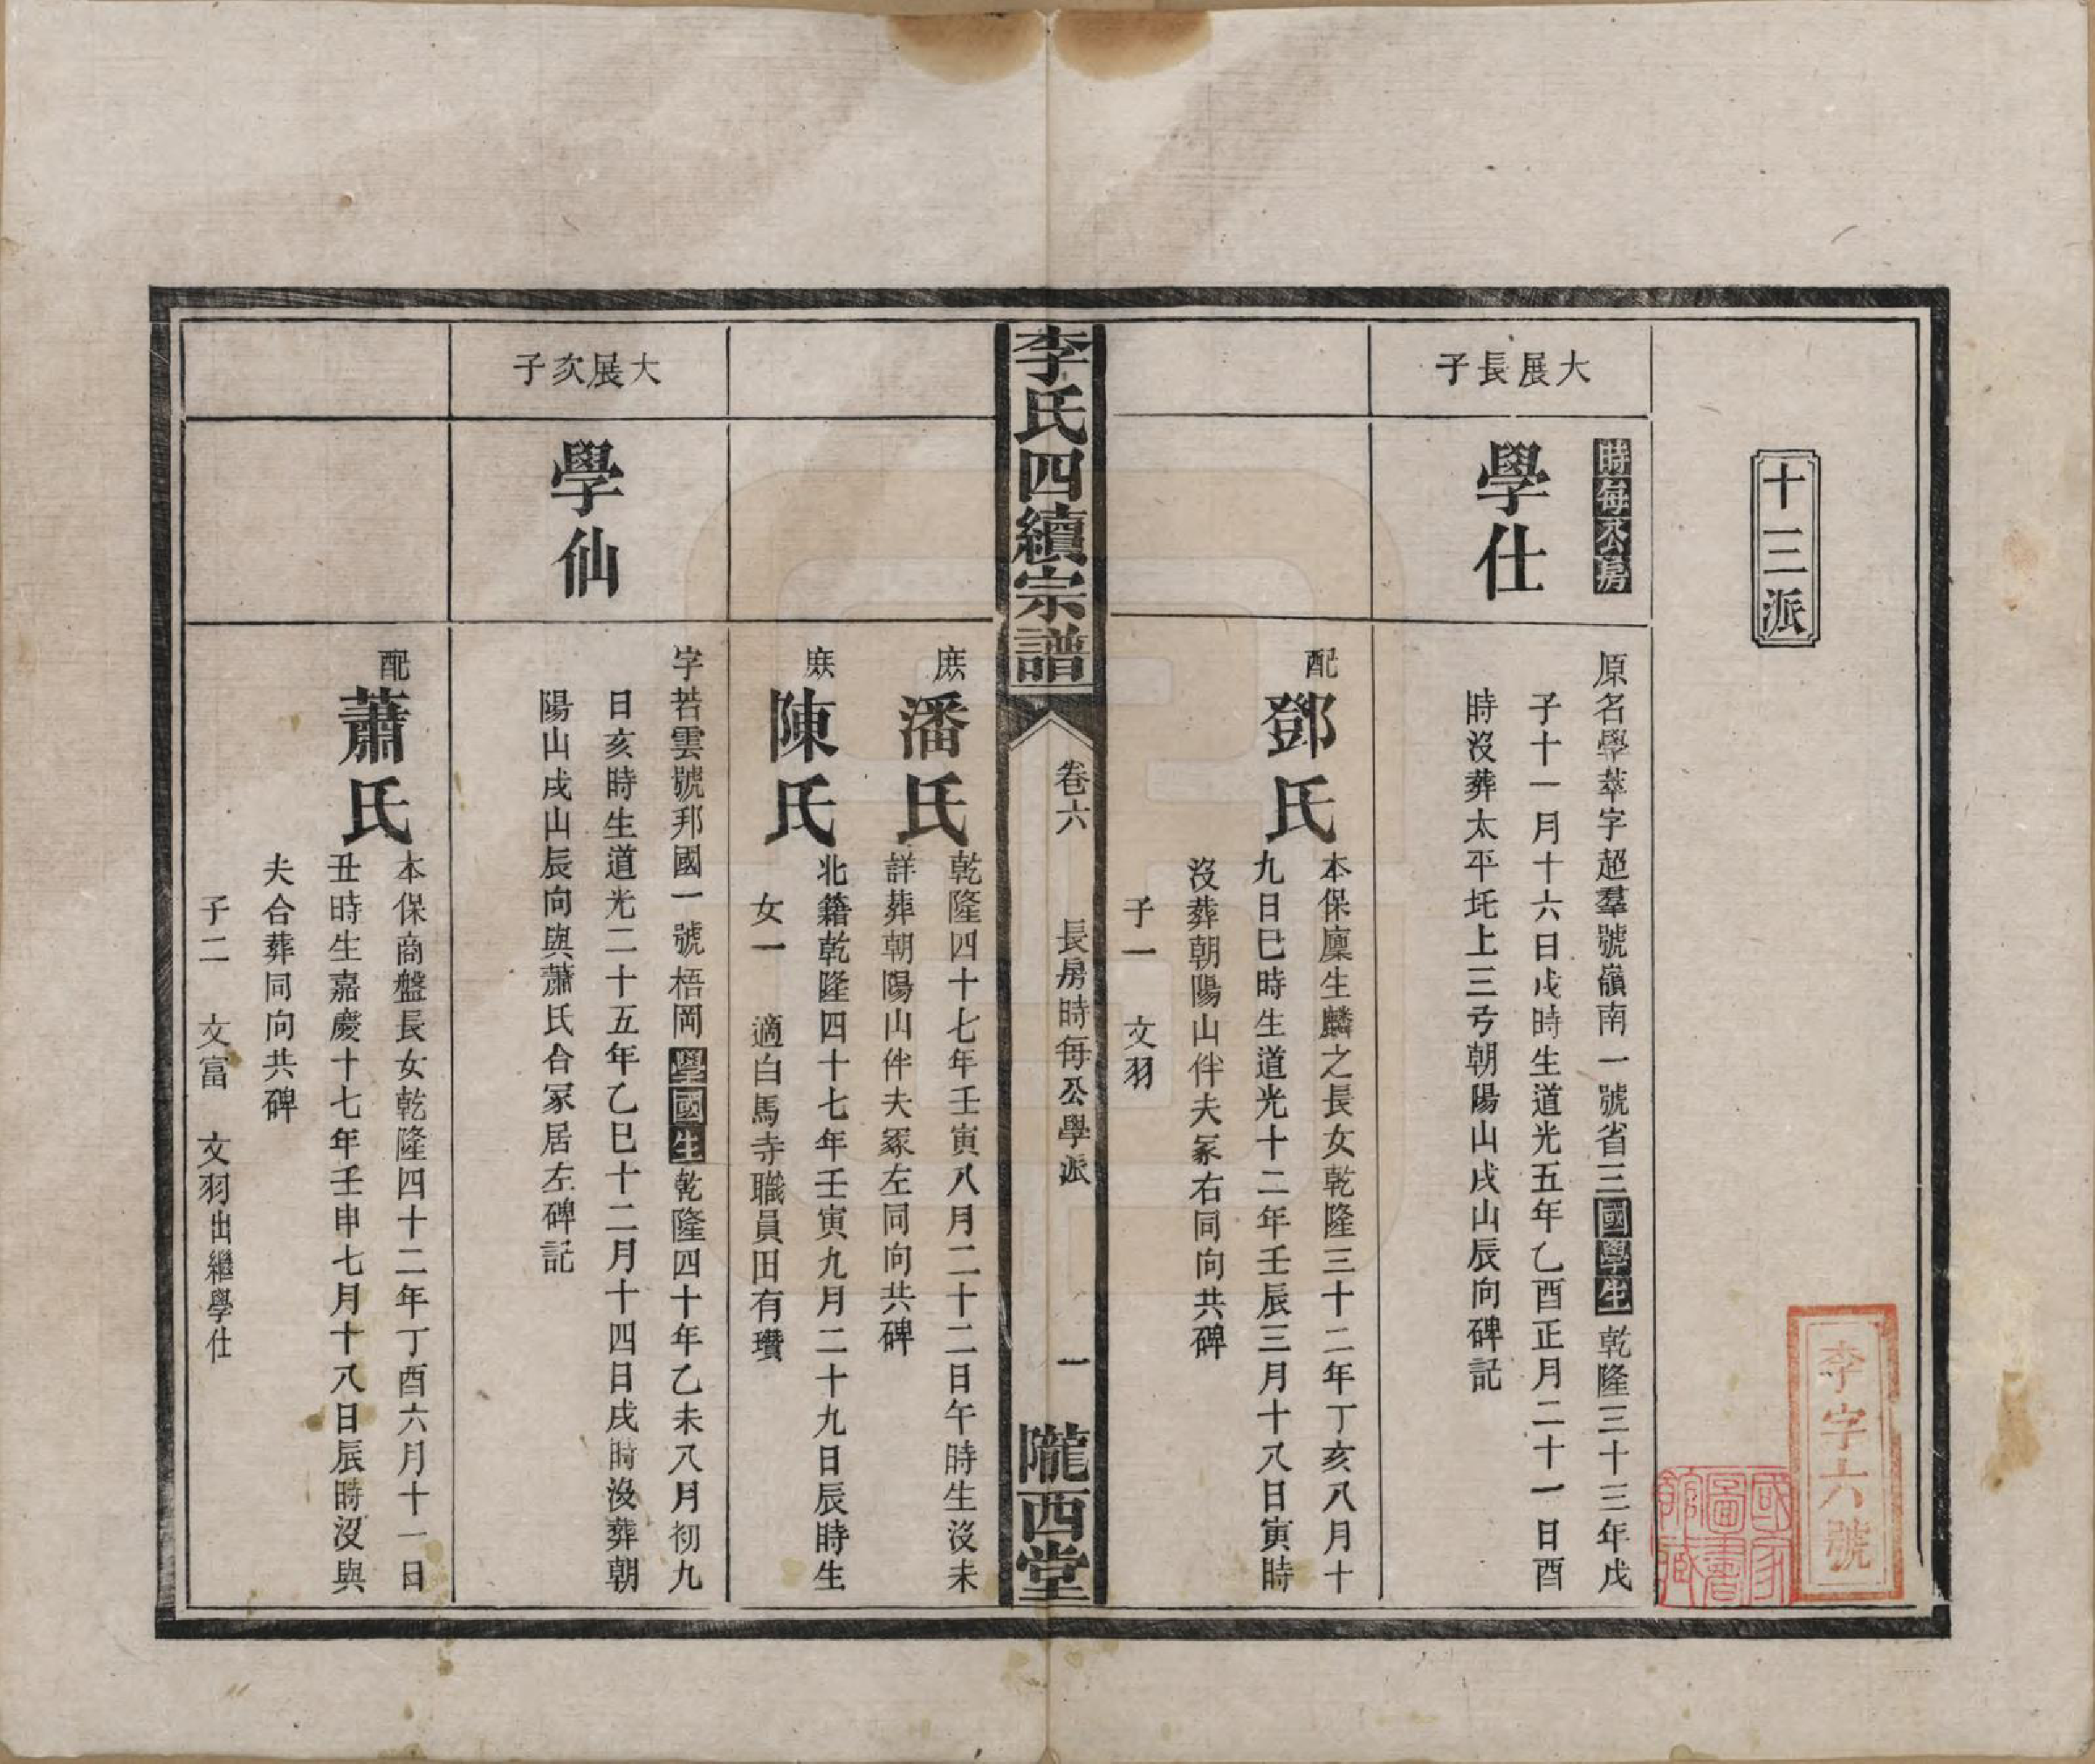 十三派
李字六號
國家圖書館藏
大展長子
時每公房
學仕
原名學萃字超羣號嶺南一號省三國學生乾隆三十三年戊
子十一月十六日戌時生道光五年乙酉正月二十一日酉
時沒葬太平圫上三亏朝陽山戌山辰向碑記
配
鄧氏
本保廩生麟之長女乾隆三十二年丁亥八月十
九日巳時生道光十二年壬辰三月十八日寅時
沒葬朝陽山伴夫冢右同向共碑
子一 文羽
李氏四續宗譜
卷六
長房時每公學派
一
隴西堂
庶
潘氏
乾隆四十七年壬寅八月二十二日午時生沒未
詳葬朝陽山伴夫冢左同向共碑
庶
陳氏
北籍乾隆四十七年壬寅九月二十九日辰時生
女一 適白馬寺職員田有瓚
大展次子
學仙
字若雲號邦國一號梧岡國學生乾隆四十年乙未八月初九
日亥時生道光二十五年乙巳十二月十四日戌時沒葬朝
陽山戌山辰向與蕭氏合冢居左碑記
配
蕭氏
本保商盤長女乾隆四十二年丁酉六月十一日
丑時生嘉慶十七年壬申七月十八日辰時沒與
夫合葬同向共碑
子二 文富 文羽出繼學仕